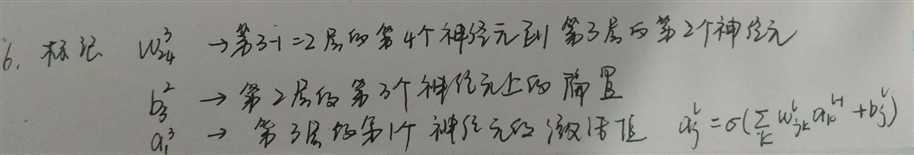 6. 标记 w₂₄³ → 第3-1=2层的第4个神经元到第3层的第2个神经元
b₃² → 第2层的第3个神经元上的偏置
a₁³ → 第3层的第1个神经元的激活值 aⱼˡ = σ(∑ₖ wⱼₖˡ aₖˡ⁻¹ + bⱼˡ)